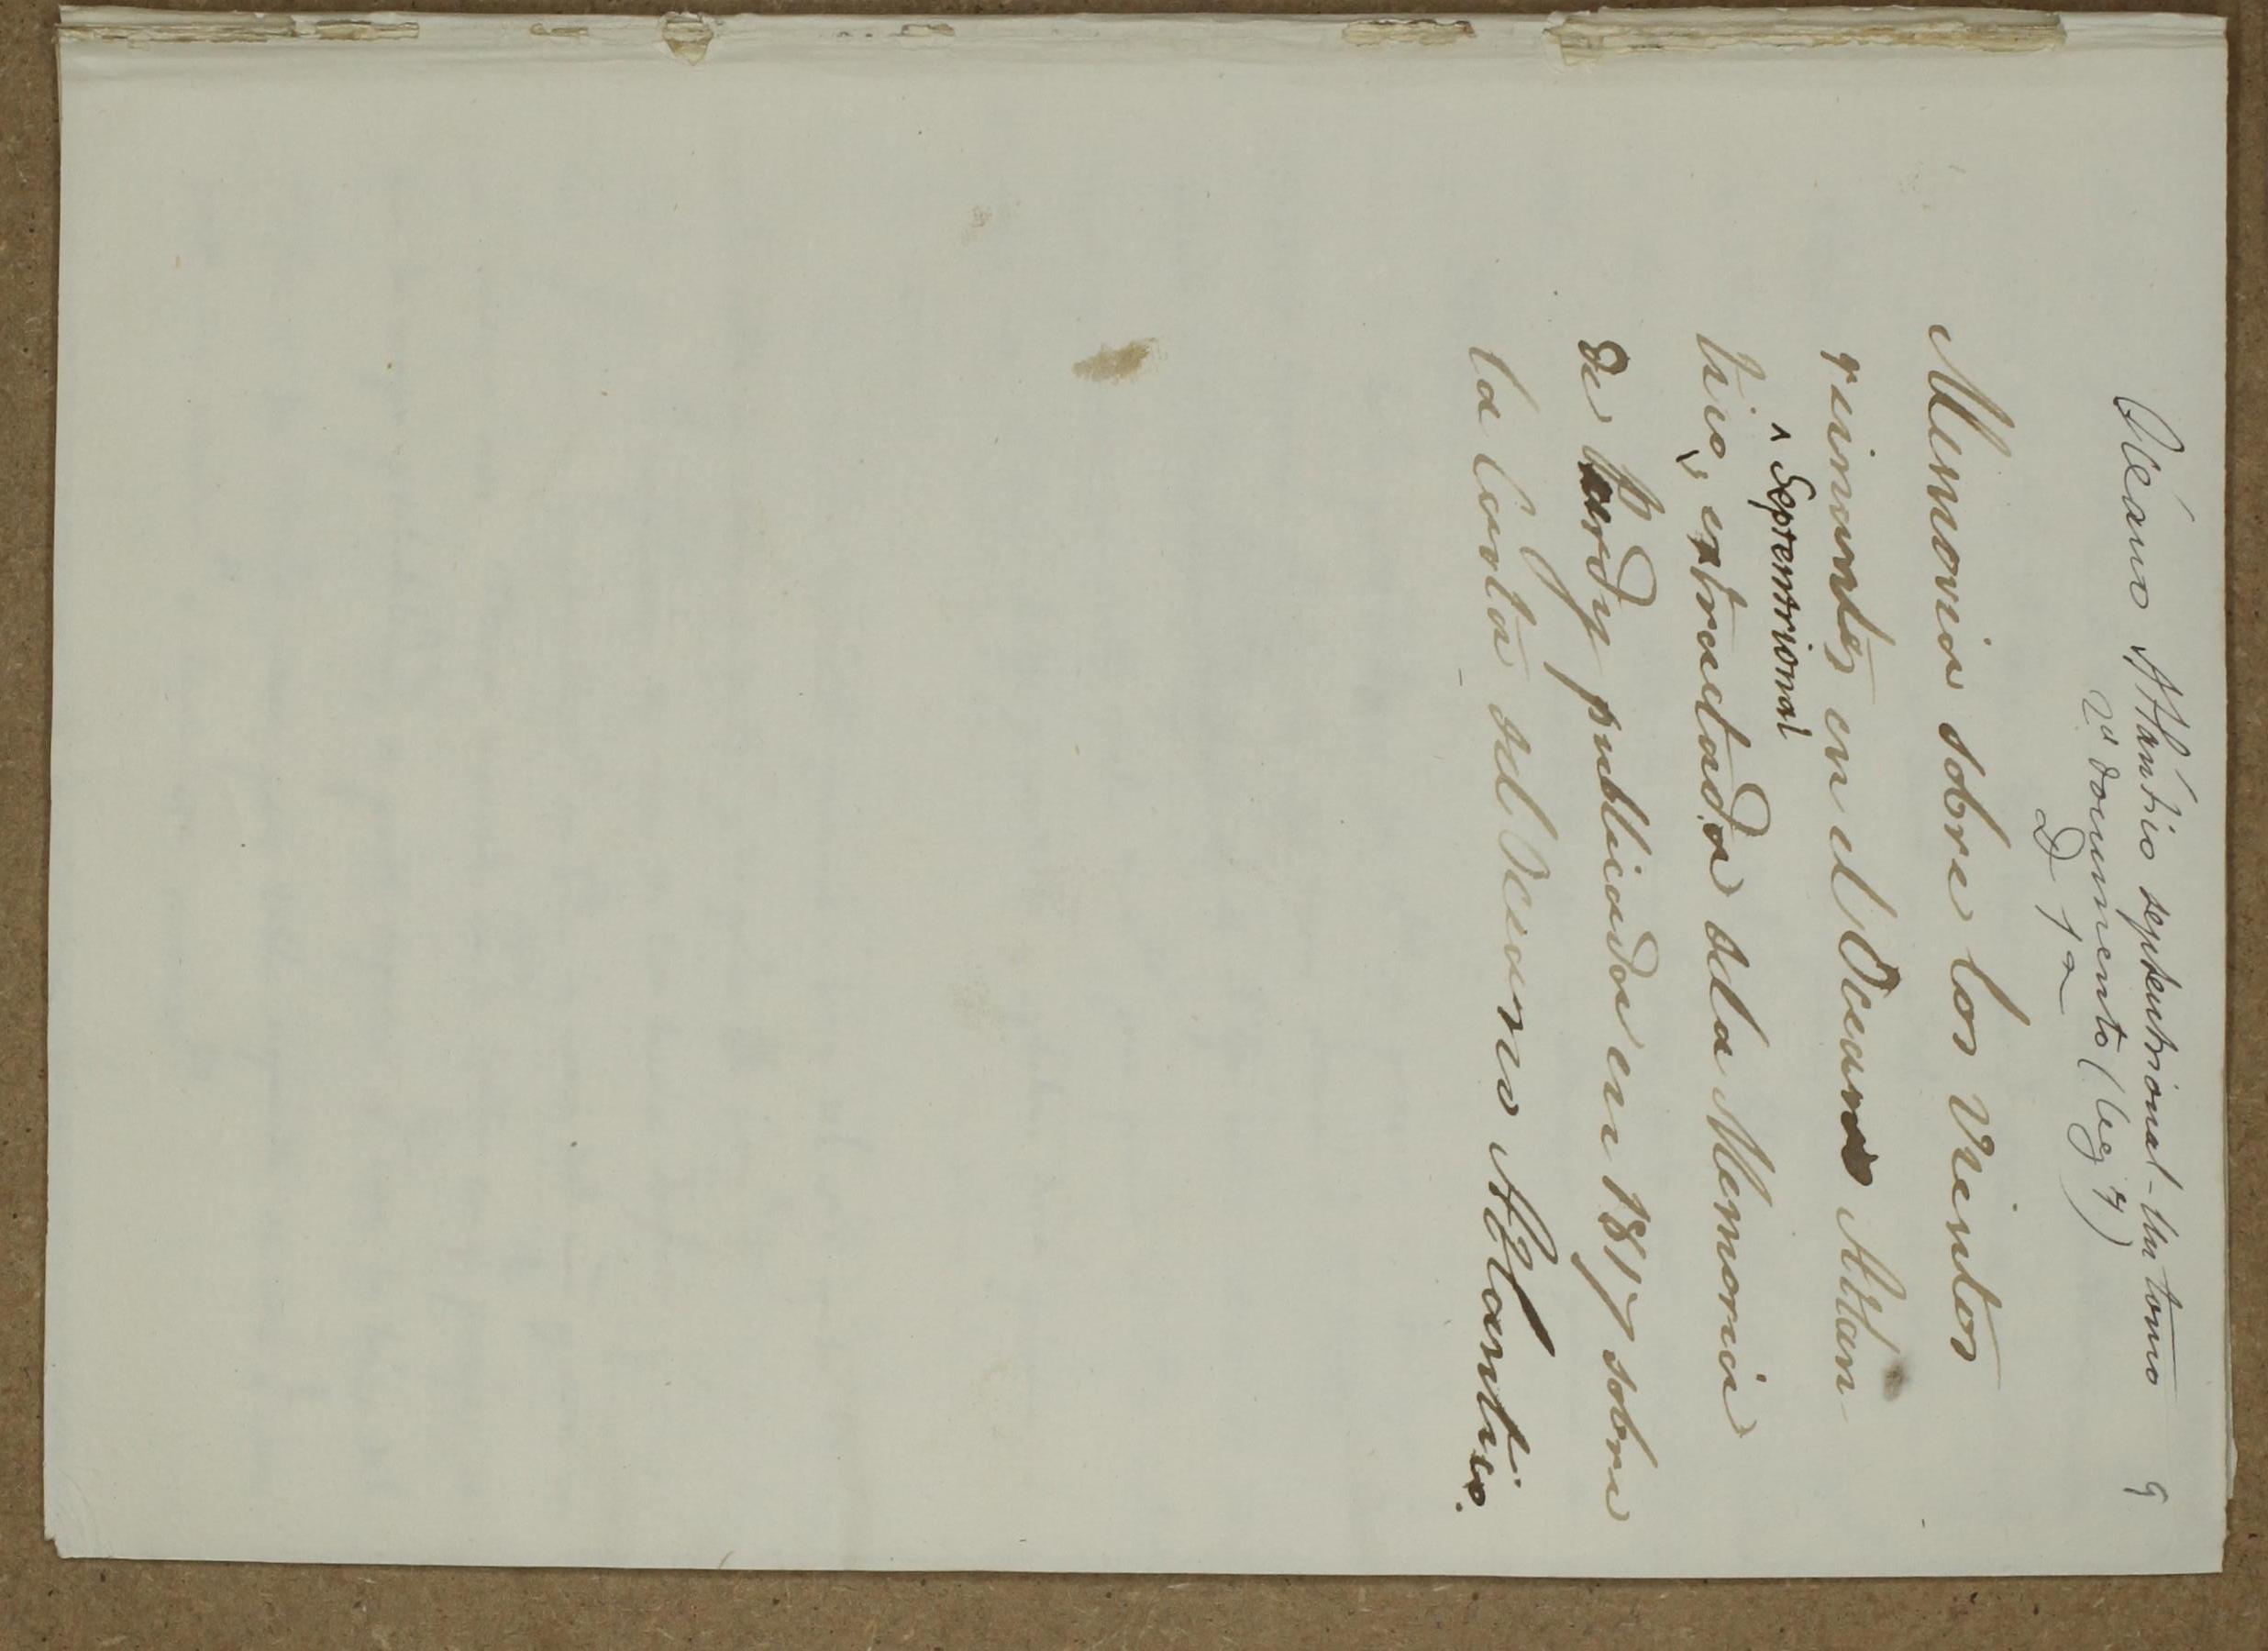 Océano Atlántico septentrional - Un tomo
9
2º documento (leg 4)
D 1ª
Memoria sobre los Vientos
reinantes en el Oceano Atlan-
^ Septentrional
tico, extractada dela Memoria
de Purdy publicada en 1817 sobre
la Carta del Oceano Atlantico.